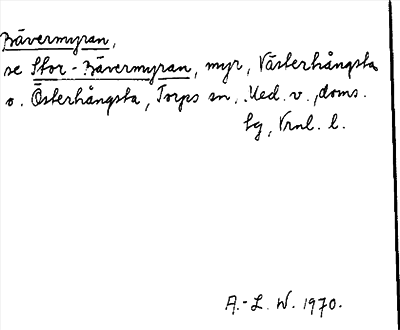 Bävermyran,
se Stor-Bävermyran, myr, Västerhångsta
o. Österhångsta, Torps sn, Med. v., doms.
lg, Vrnl. l.
A.-L. W. 1970.